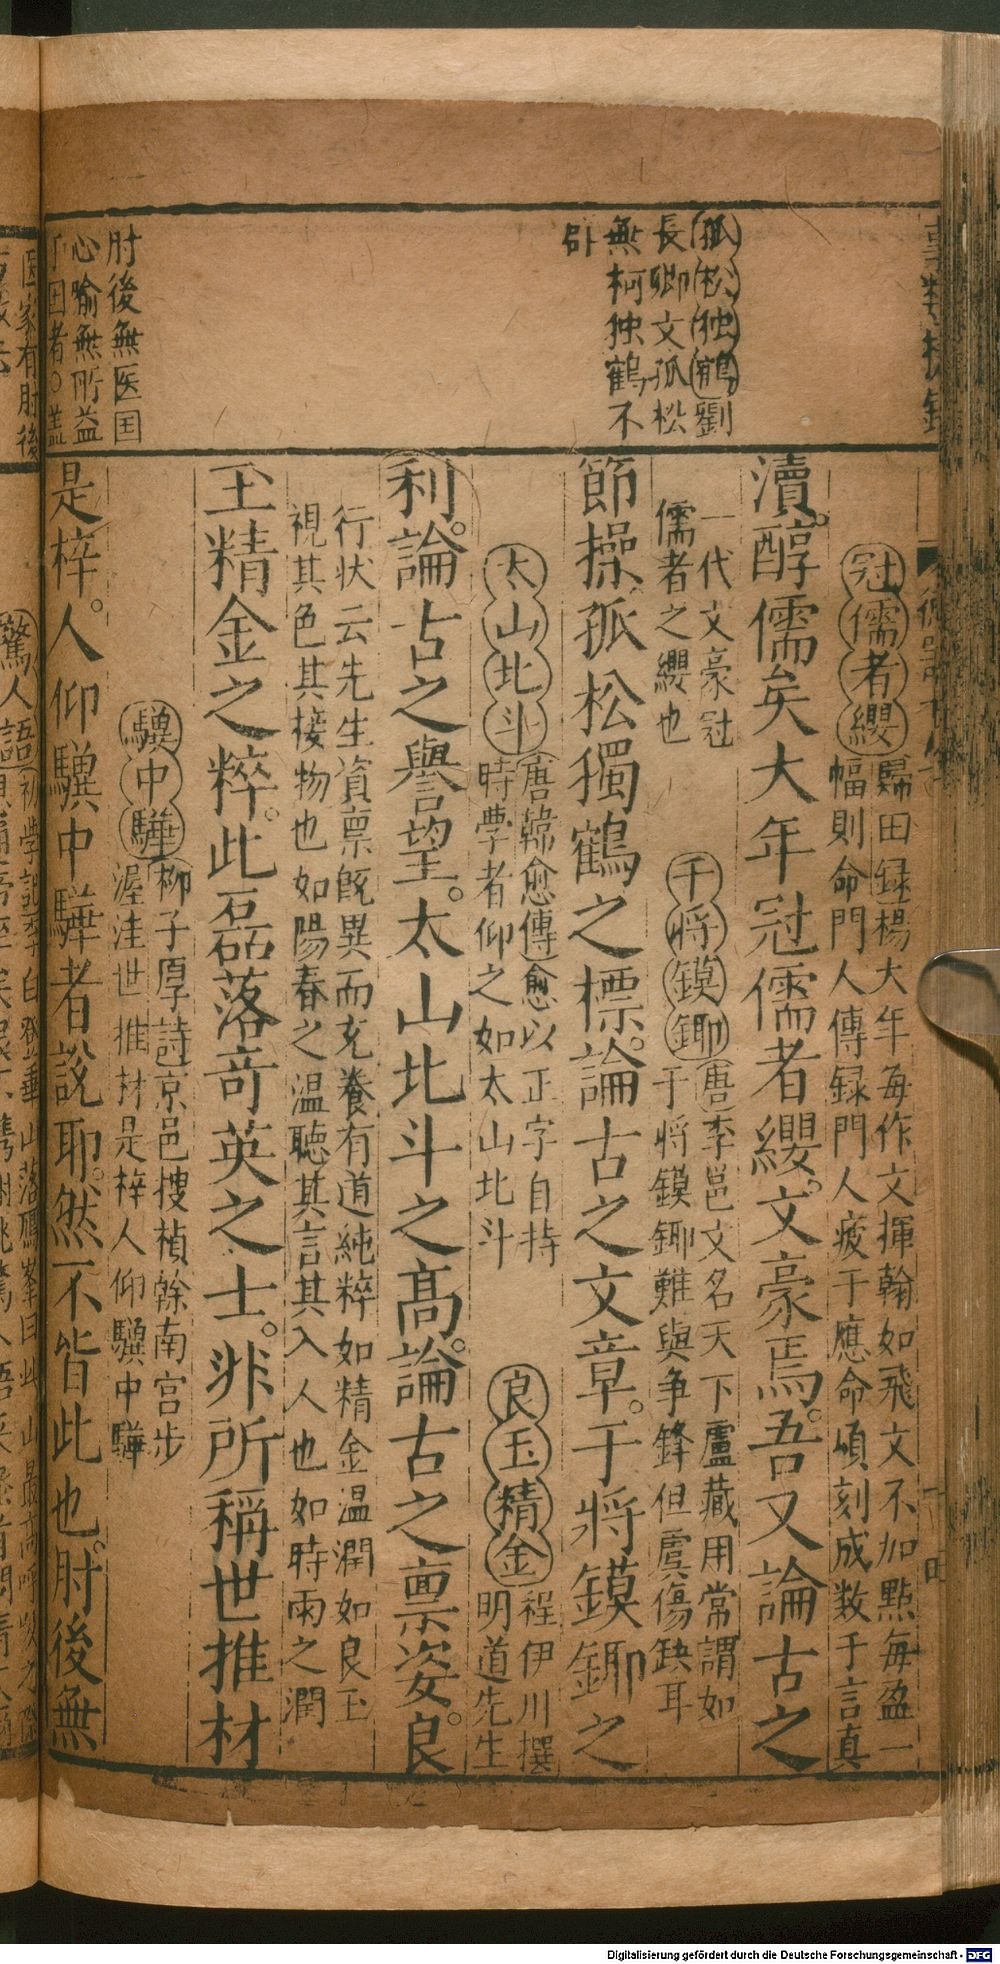 孤松独鶴劉
長卿文孤松
無柯独鶴不
卧
肘後無医国
心喻無所益
于国者○盖
瀆醇儒矣大年冠儒者纓文豪焉吾又論古之
冠儒者纓歸田録楊大年每作文揮翰如飛文不加點每盈一
幅則命門人傳録門人疲于應命頃刻成数千言真
一代文豪冠
儒者之纓也
干將鏌鎁唐李邕文名天下盧藏用常謂如
于將鏌鎁難與争鋒但虞傷缺耳
節操孤松獨鶴之標論古之文章于將鏌鎁之
太山北斗唐韓愈傳愈以正字自持
時學者仰之如太山北斗
良玉精金程伊川撰
明道先生
利論古之譽望太山北斗之髙論古之禀姿良
行状云先生資禀既異而充養有道純粹如精金温潤如良玉
視其色其接物也如陽春之温聽其言其入人也如時雨之潤
玉精金之粹此磊落竒英之士非所稱世推材
驥中驊柳子厚詩京邑搜楨榦南宫步
渥洼世推材是梓人仰驥中驊
是梓人仰驥中驊者說耶然不皆此也肘後無
医家有肘後
驚人語
Digitalisierung gefördert durch die Deutsche Forschungsgemeinschaft - DFG